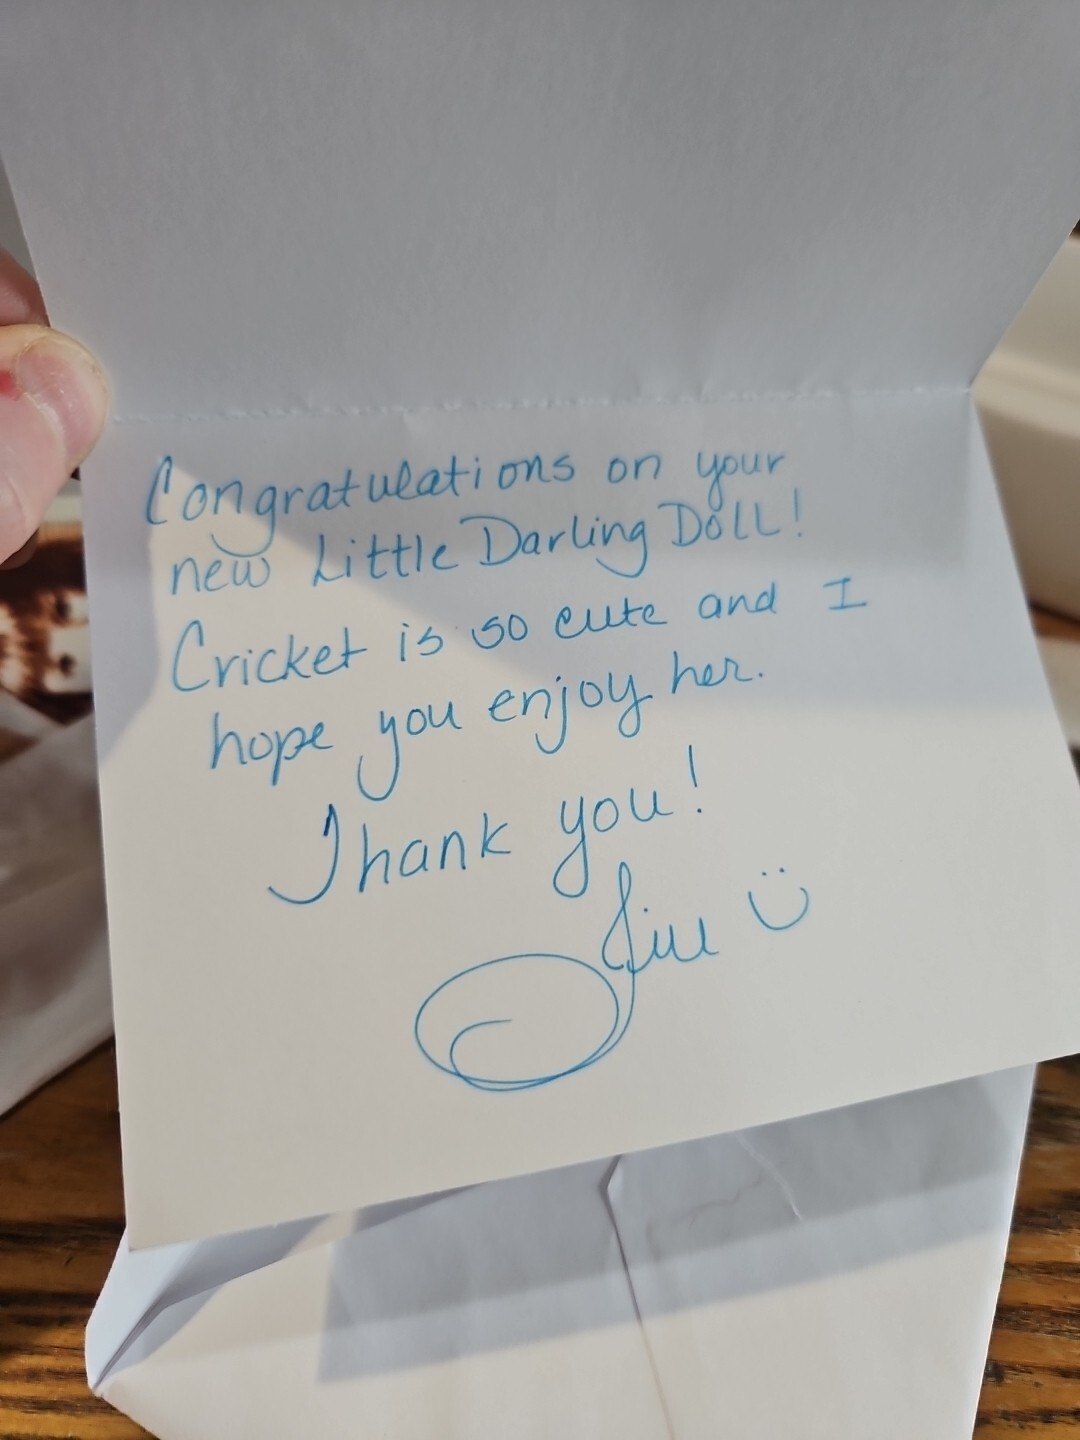 Congratulations on your
new Little Darling Doll!
Cricket is so cute and I
hope you enjoy her.
Thank you!
Jill :)